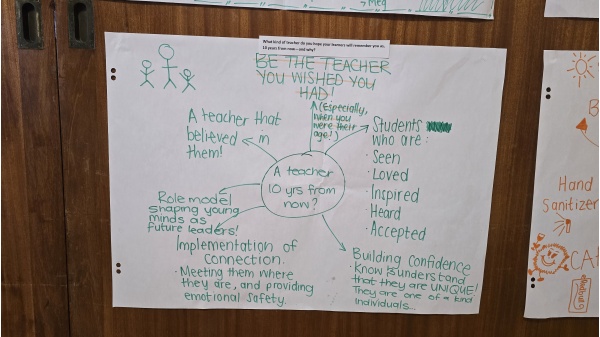 Meg
What kind of teacher do you hope your learners will remember you as,
10 years from now – and why?
BE THE TEACHER
YOU WISHED YOU
HAD!
A (Especially,
when you
were their
age!)
A teacher that
believed in
them!
Students
who are:
· Seen
· Loved
· Inspired
· Heard
· Accepted
A teacher
10 yrs from
now?
Role model
shaping young
minds as
future leaders!
Implementation of
Connection.
· Meeting them where
they are, and providing
emotional safety.
Building Confidence
· Know & understand
that they are UNIQUE!
They are one of a kind
individuals...
Hand
Sanitizer